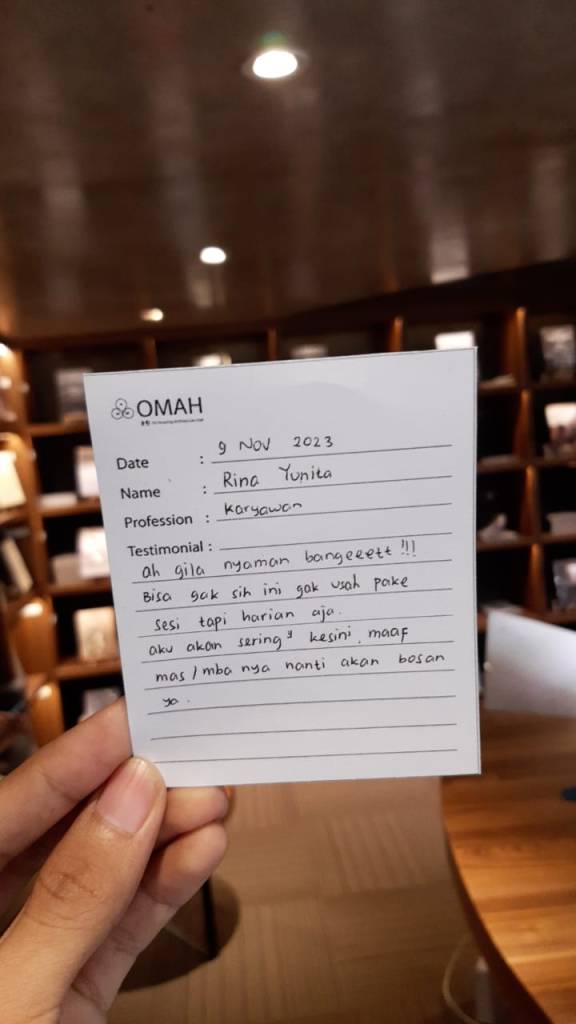 OMAH
Date : 9 Nov 2023
Name : Rina Yunita
Profession : Karyawan
Testimonial :
ah gila nyaman bangeeett !!!
Bisa gak sih ini gak usah pake
sesi tapi harian aja.
aku akan sering² kesini, maaf
mas / mba nya nanti akan bosan
ya.